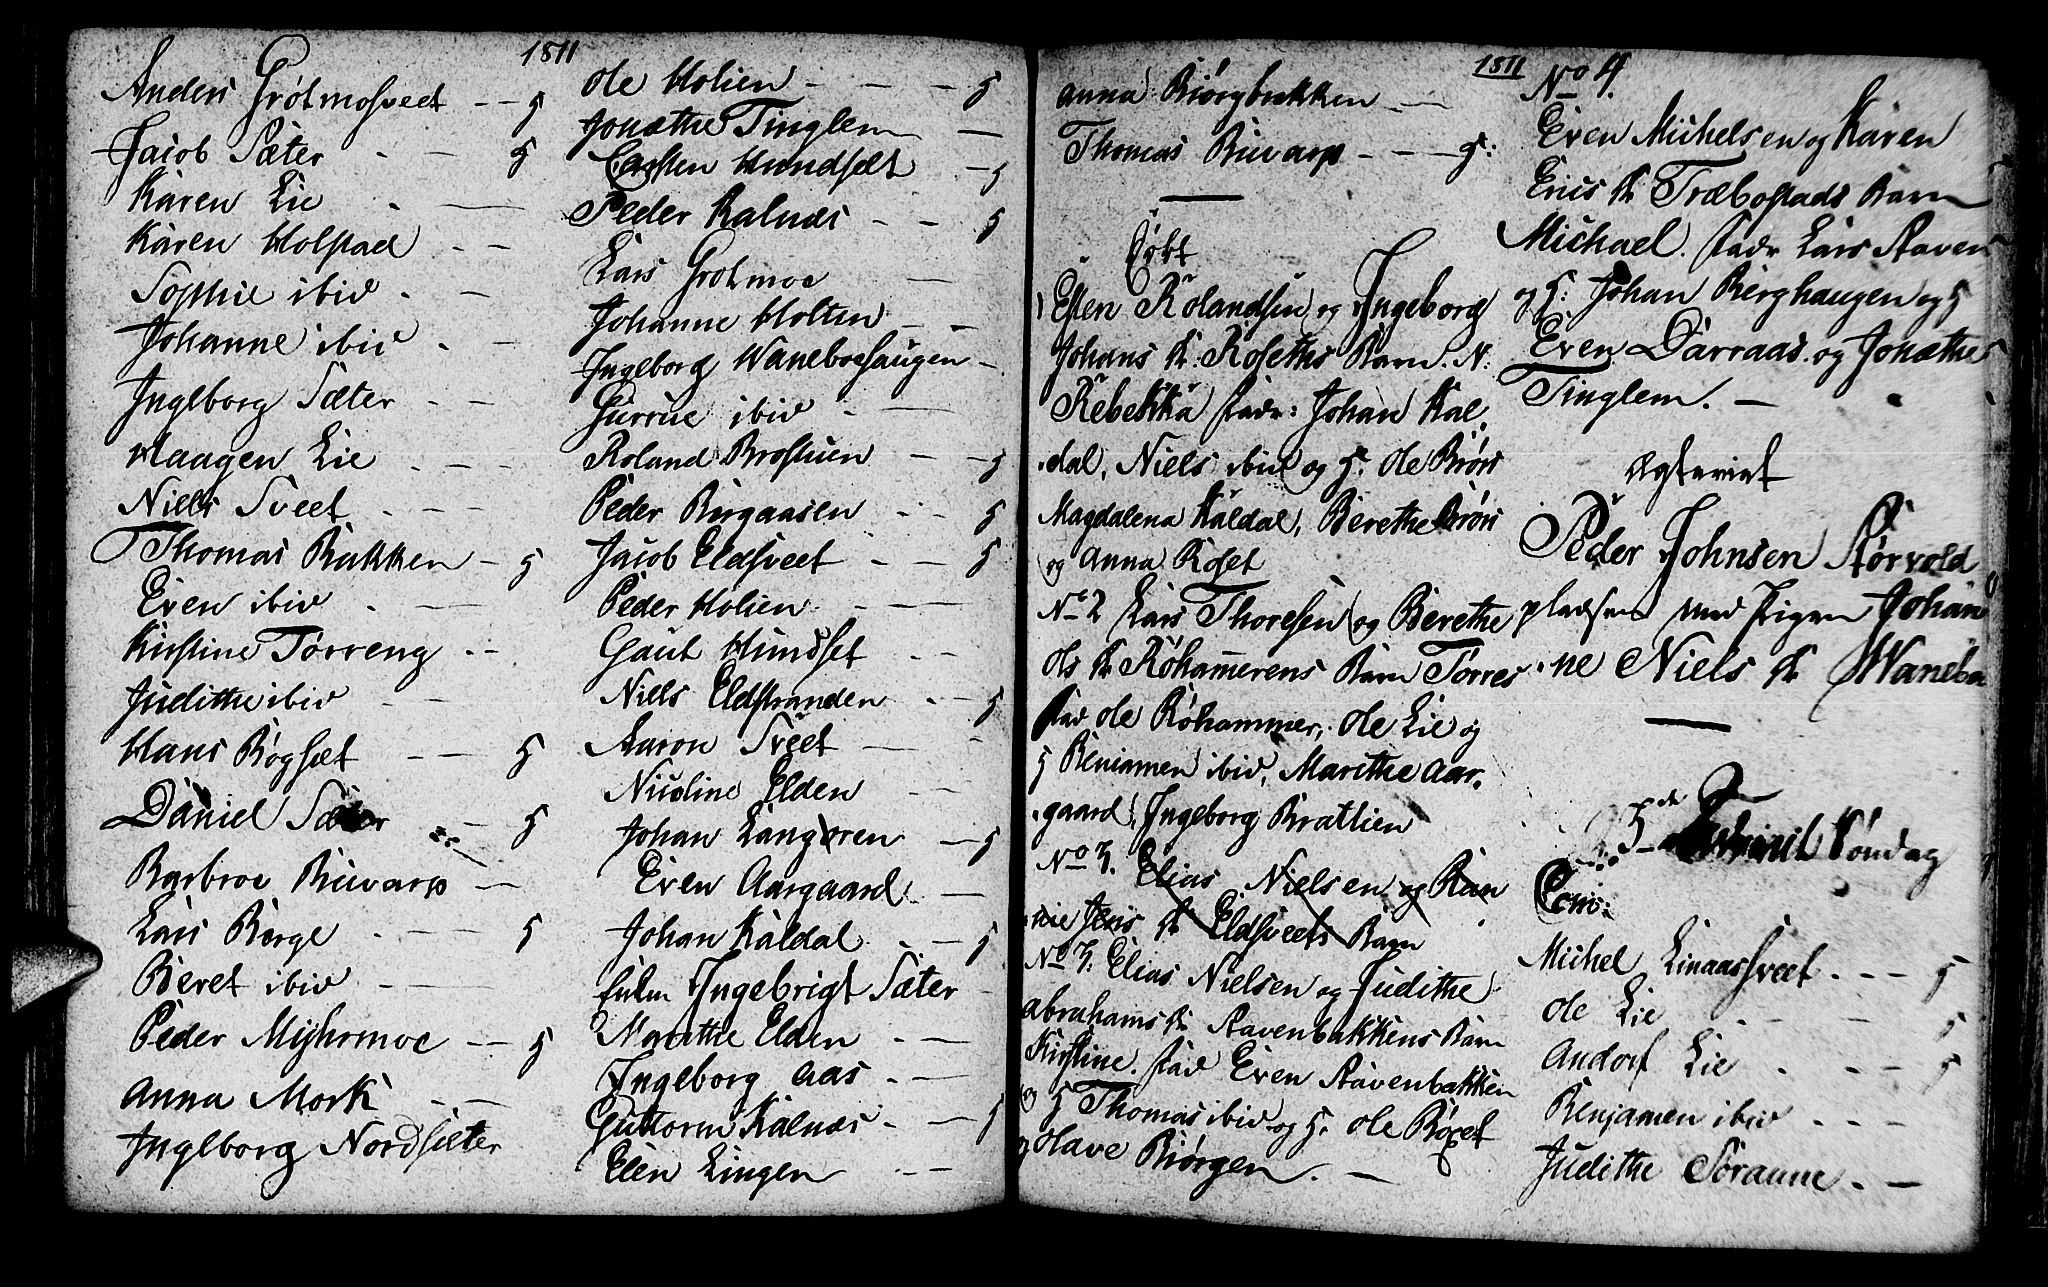 1811
Anders Grötmosveet - - 5
Jacob Sæter - - 5
Karen Lie - -
Karen Holstad - -
Sophie ibid - -
Johanne ibid - -
Ingeborg Sæter - -
Haagen Lie - -
Niels Sveet - -
Thomas Bakken - 5
Even ibid - -
Kirstine Törreng - -
Judithe ibid - -
Hans Bögsæt - - 5
Daniel Sæter - 5
Barbroe Buvarp - -
Lars Børge - - 5
Beret ibid - -
Peder Myhrmoe - - 5
Anna Mork - -
Ingeborg Nordsæter
Ole Holien - - - 5
Jonæthe Tinglem -
Carsten Hundsæt - 5
Peder Kalnæs - - 5
Lars Grötmoe -
Johanne Holten - -
Ingeborg Waneboehaugen -
Gurrue ibid - -
Roland Brostuen - - 5
Peder Burgaasen - - 5
Jacob Eldsveet - - 5
Peder Holien - -
Gaut Hundset - -
Niels Eldstranden - - 5
Aaron Sveet - -
Nicoline Elden - -
Johan Langören - 5
Even Aargaard -
Johan Kaldal - - 5
Ingebrigt Sæter -
Marithe Elden - -
Ingeborg Aas - -
Guttorm Kalnæs - - 5
Elen Lingen - -
1811
Anna Biörgbakken - -
Thomas Buvarp - - - 5:
Döbt
Esten Rolandsen og Ingeborg
Johans D. Rosethes Barn. N:
Rebekka fadr: Johan Kal,
dal, Niels ibid og 5. Ole Brörs
Magdalena Kaldal, Berethe Brörs
og Anna Roset
No 2 Lars Thoresen og Berethe
Ols D Röhamerens Barn Törres
fad Ole Röhammer, Ole Lie og
5 Benjamen ibid, Marithe Aar,
gaard, Ingeborg Bratlien
No 3. Elias Nielsen og
Jens D Eldsveets Barn
No 3: Elias Nielsen og Judithe
Abrahams D Aavenbakkens Barn
Kirstine. fad Even Aavenbakken
og 5 Thomas ibid og 5. Ole Röset
Olave Biörgen. -
No 4.
Even Michelsen og Karen
Erics D Træbostads Barn
Michael. fadr Lars Aaven
og 5: Johan Berghaugen og 5
Even Darraas og Jonæthe
Tinglem. -
Ægteviet
Peder Johnsen Störvold
pladsen med Pigen Johan
ne Niels D Wanebo
5de Trinit Söndag
Com:
Michel Linaassveet - - - 5
Ole Lie - - - 5
Andorf Lie - - - 5
Benjamen ibid - - -
Judithe Soraune - -